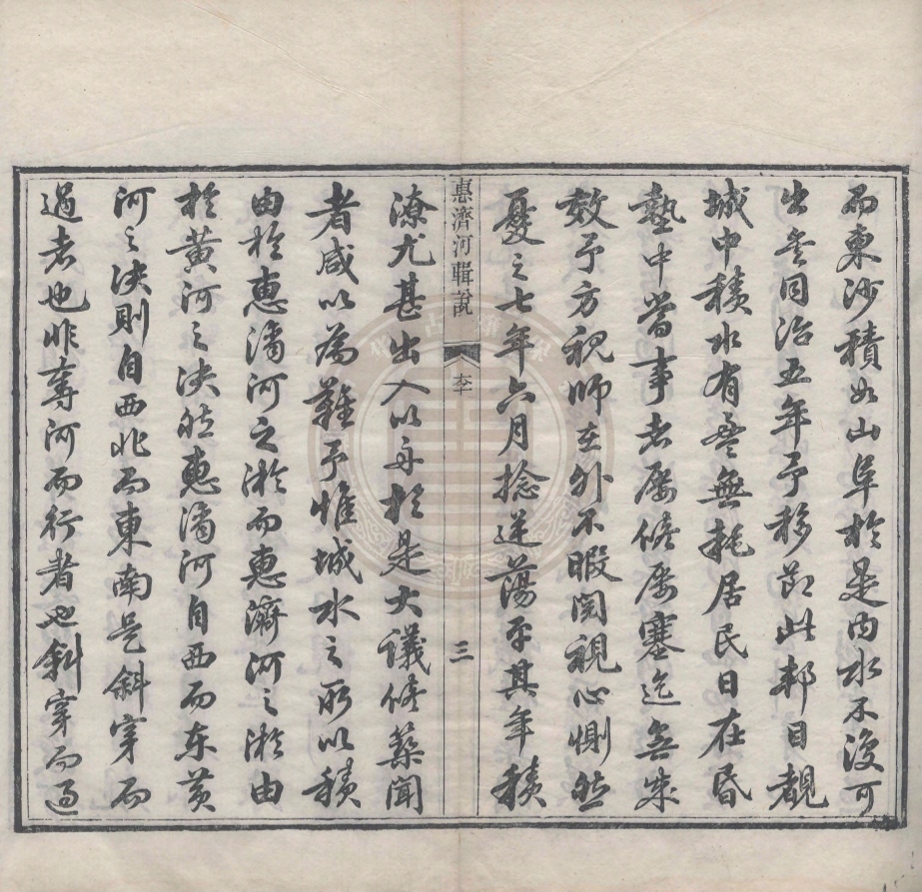 而東沙積如山阜於是內水不復可
出矣同治五年予移節此邦目覩
城中積水有盈無耗居民日在昏
墊中當事者屢修屢塞迄無成
效予方視師在外不暇閱視心惻然
憂之七年六月捻逆蕩平其年積
惠濟河輯說
李
三
潦尤甚出入以舟於是大議修築聞
者咸以為難予惟城水之所以積
由於惠濟河之淤而惠濟河之淤由
於黃河之決然惠濟河自西而东黃
河之決則自西北而東南是斜穿而
過者也非奪河而行者也斜穿而過